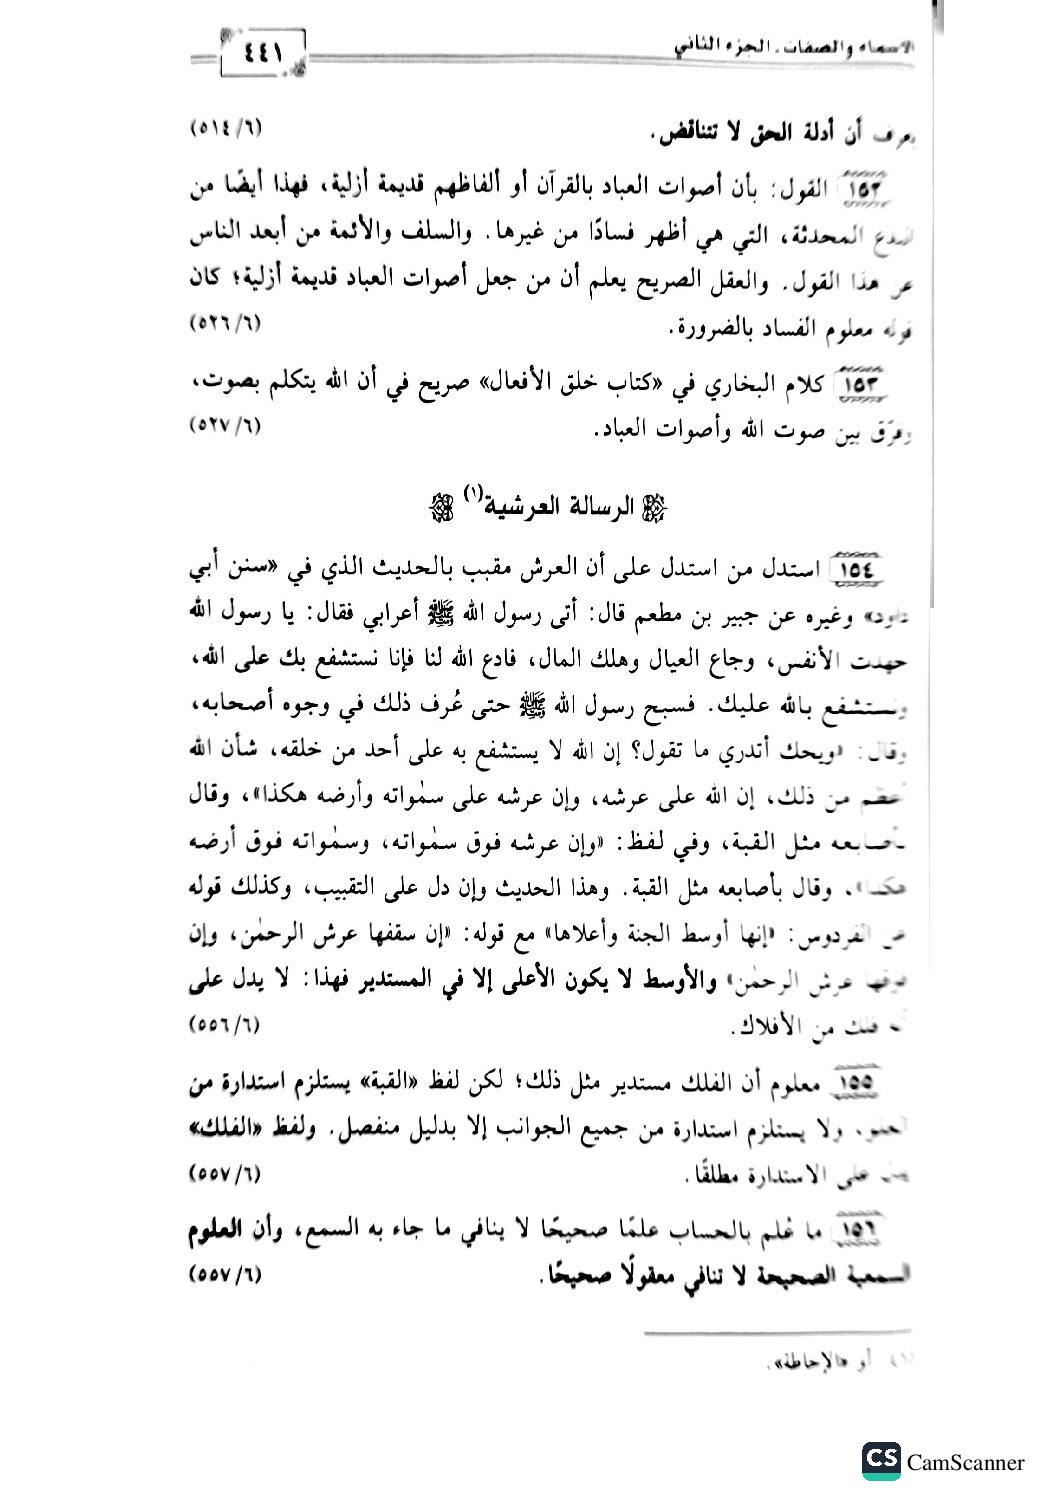 الأسماء والصفات ـ الجزء الثاني
٤٤١
يعرف أن أدلة الحق لا تتناقض. (٥١٤/٦)
١٥٢ القول: بأن أصوات العباد بالقرآن أو ألفاظهم قديمة أزلية، فهذا أيضًا من
البدع المحدثة، التي هي أظهر فسادًا من غيرها. والسلف والأئمة من أبعد الناس
عن هذا القول. والعقل الصريح يعلم أن من جعل أصوات العباد قديمة أزلية؛ كان
قوله معلوم الفساد بالضرورة. (٥٢٦/٦)
١٥٣ كلام البخاري في «كتاب خلق الأفعال» صريح في أن الله يتكلم بصوت،
وفرّق بين صوت الله وأصوات العباد. (٥٢٧/٦)
الرسالة العرشية(١)
١٥٤ استدل من استدل على أن العرش مقبب بالحديث الذي في «سنن أبي
داود» وغيره عن جبير بن مطعم قال: أتى رسول الله ﷺ أعرابي فقال: يا رسول الله
جهدت الأنفس، وجاع العيال وهلك المال، فادع الله لنا فإنا نستشفع بك على الله،
ونستشفع بالله عليك. فسبح رسول الله ﷺ حتى عُرف ذلك في وجوه أصحابه،
وقال: «ويحك أتدري ما تقول؟ إن الله لا يستشفع به على أحد من خلقه، شأن الله
أعظم من ذلك، إن الله على عرشه، وإن عرشه على سمٰواته وأرضه هكذا»، وقال
بأصابعه مثل القبة، وفي لفظ: «وإن عرشه فوق سمٰواته، وسمٰواته فوق أرضه
هكذا». وقال بأصابعه مثل القبة. وهذا الحديث وإن دل على التقبيب، وكذلك قوله
عن الفردوس: «إنها أوسط الجنة وأعلاها» مع قوله: «إن سقفها عرش الرحمٰن، وإن
فوقها عرش الرحمٰن» والأوسط لا يكون الأعلى إلا في المستدير فهذا: لا يدل على
أنه فلك من الأفلاك. (٥٥٦/٦)
١٥٥ معلوم أن الفلك مستدير مثل ذلك؛ لكن لفظ «القبة» يستلزم استدارة من
العلو، ولا يستلزم استدارة من جميع الجوانب إلا بدليل منفصل. ولفظ «الفلك»
يدل على الاستدارة مطلقًا. (٥٥٧/٦)
١٥٦ ما عُلم بالحساب علمًا صحيحًا لا ينافي ما جاء به السمع، وأن العلوم
السمعية الصحيحة لا تنافي معقولًا صحيحًا. (٥٥٧/٦)
(١) أو «الإحاطة».
CS CamScanner